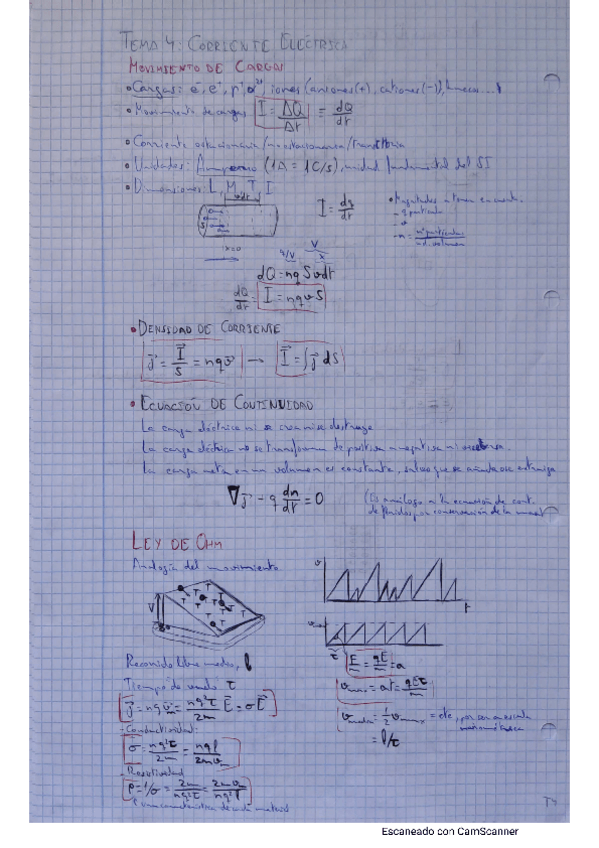 TEMA 4: CORRIENTE ELÉCTRICA
MOVIMIENTO DE CARGAS
• Cargas: e, e⁻, p⁺, iones (aniones(+), cationes(-)), huecos...
• Movimiento de cargas I = ΔQ/Δt = dQ/dt
• Corriente estacionaria/no estacionaria/transitoria
• Unidades: Amperio (1A = 1C/s), unidad fundamental del SI
• Dimensiones: L, M, T, I
vdt
S
x=0
I = dq/dt
• Magnitudes a tomar en cuenta
- q partícula
- v
- n = nº partículas/ud. volumen
q/V V x
dQ = nq S v dt
dQ/dt = I = nqvS
• DENSIDAD DE CORRIENTE
j⃗ = I⃗/S = nqv⃗ → I⃗ = ∫j⃗ dS
• ECUACIÓN DE CONTINUIDAD
La carga eléctrica ni se crea ni se destruye
La carga eléctrica no se transforma de positiva a negativa ni viceversa.
La carga neta en un volumen es constante, salvo que se añada o se extraiga
∇j⃗ - q dn/dt = 0
(Es análogo a la ecuación de cont.
de fluidos, por conservación de la masa)
LEY DE OHM
Analogía del movimiento
V
v
t
τ
Recorrido libre medio, l
Tiempo de vuelo τ
j⃗ = nqv⃗m = nq²τ/2m E⃗ = σE⃗
- Conductividad:
σ = nq²τ/2m = nql/2mvm
- Resistividad
ρ = 1/σ = 2m/nq²τ = 2mvm/nq²l
característica de cada material
= qE/m = a
= at = qEτ/m
= 1/2 v = cte, por ser
= l/τ
T4
Escaneado con CamScanner